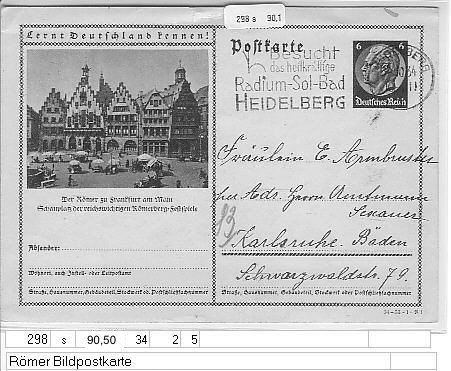 298 s 90,1
Lernt Deutschland kennen!
Postkarte
Besucht
das heilkräftige
Radium-Sol-Bad
HEIDELBERG
6 6
Deutsches Reich
Der Römer zu Frankfurt am Main
Schauplatz der reichswichtigen Römerberg-Festspiele
Absender:
Wohnort, auch Zustell- oder Leitpostamt
Straße, Hausnummer, Gebäudeteil, Stockwerk od. Postschließfachnummer
Fräulein E. Armbruster
bei Adr. Herrn Amtmann
Karlsruhe. Baden
Schwarzwaldstr. 79.
Straße, Hausnummer, Gebäudeteil, Stockwerk oder Postschließfachnummer
298 s 90,50 34 2 5
Römer Bildpostkarte